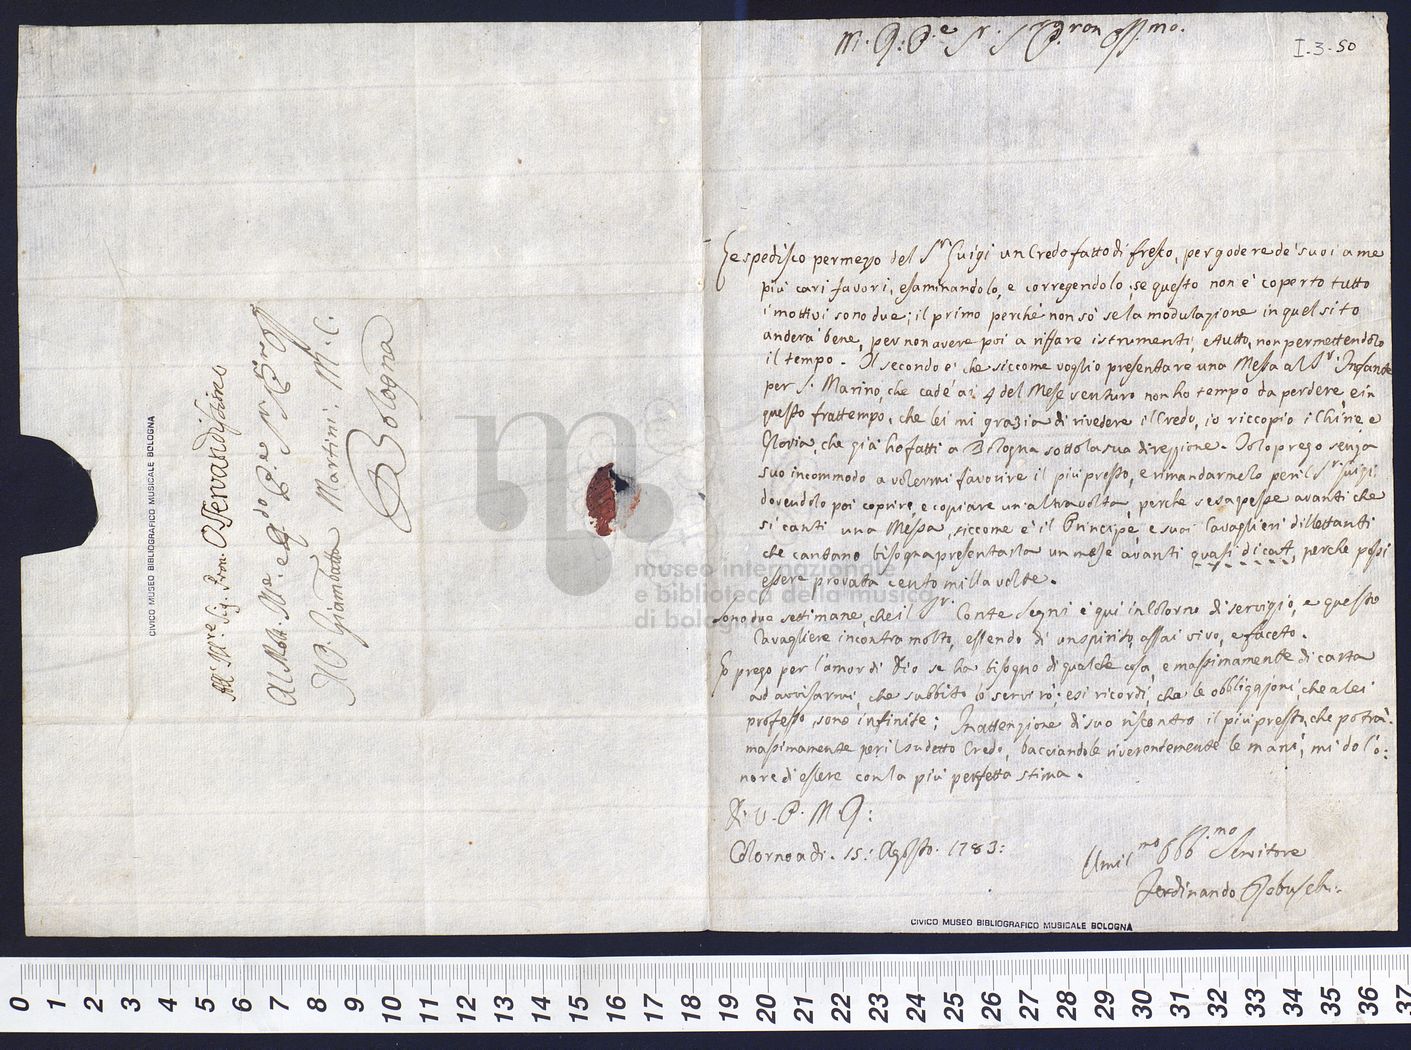 All' M.re Sig. Sig. Pron. Osservandissimo
Al Molt. Re. e Pre Sr
Giambatta Martini. M. C.
Bologna
CIVICO MUSEO BIBLIOGRAFICO MUSICALE BOLOGNA
I.3.50
spedisco per mezzo del Sr. Luigi un Credo fatto di fresco, per godere de' suoi a me
più cari favori, esaminandolo, e corregendolo, se questo non è coperto tutto
i mottivi sono due; il primo perchè non sò se la modulazione in quel sito
anderà bene, per non avere poi a riffare istrumenti, e tutto, non permettendolo
il tempo. Il secondo è che siccome voglio presentare una Messa al Sr. Infante
per S. Marino, che cade a i 4 del Mese venturo non ho tempo da perdere, e in
questo frattempo, che lei mi grazia di rivedere il Credo, io riccopio i Chirie e
Gloria, che già ho fatti a Bologna sotto la sua direzzione. Solo prego senza
suo incommodo a volermi favorire il più presto, e rimandarmelo per il Sr. Luigi
dovendolo poi coprire, e copiare un'altra volta, perche se sapesse avanti che
si canti una Messa, siccome è il Principe, e suoi Cavaglieri dillettanti
che cantano bisogna presentarla un mese avanti quasi dicat, perche possi
essere provata cento milla volte.
Sono due settimane, che il Sr. Conte Segni è qui in Colorno di servigio, e questo
Cavagliere incontra molto, essendo di un spirito assai vivo, e faceto.
prego per l'amor di Dio se ha bisogno di qualche cosa, e massimamente di carta
ad avvisarmi, che subbito lo servirò; e si ricordi, che le obbligazioni, che a lei
professo, sono infinite; In attenzione di suo riscontro il più presto, che potrà.
massimamente per il sudetto Credo, bacciandole riverentemente le mani, mi do l'o:
nore di essere con la più perfetta stima.
Di V. P. M. R:
Colorno a di. 15: Agosto. 1783:
Umil.mo Obb.mo Servitore
Ferdinando
CIVICO MUSEO BIBLIOGRAFICO MUSICALE BOLOGNA
museo internazionale
e biblioteca della musica
di bologna
0 1 2 3 4 5 6 7 8 9 10 11 12 13 14 15 16 17 18 19 20 21 22 23 24 25 26 27 28 29 30 31 32 33 34 35 36 37